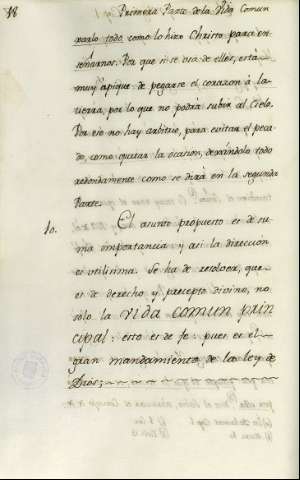 18 Primera Parte de la Vida Comun
xarlo todo como lo hizo Christo para en
señarnos. Por que si se usa de ellos, está
muy apique de pegarse el corazon á la
tierra, por lo que no podrá subir al Cielo.
Por eso no hay arbitrio, para evitar el peca
do, como quitar la ocasion, dexándolo todo
redondamente como se dirá en la segunda
Parte.
10. El asunto propuesto es de su
ma importancia y asi la direccion
es utilisima. Se ha de resolver, que
es de derecho y precepto divino, no
sólo la Vida comun prin
cipal: esto es de fe: pues es el
gran mandamiento de la ley de
Dios;